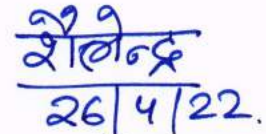 शैलेन्द्र
26/4/22.